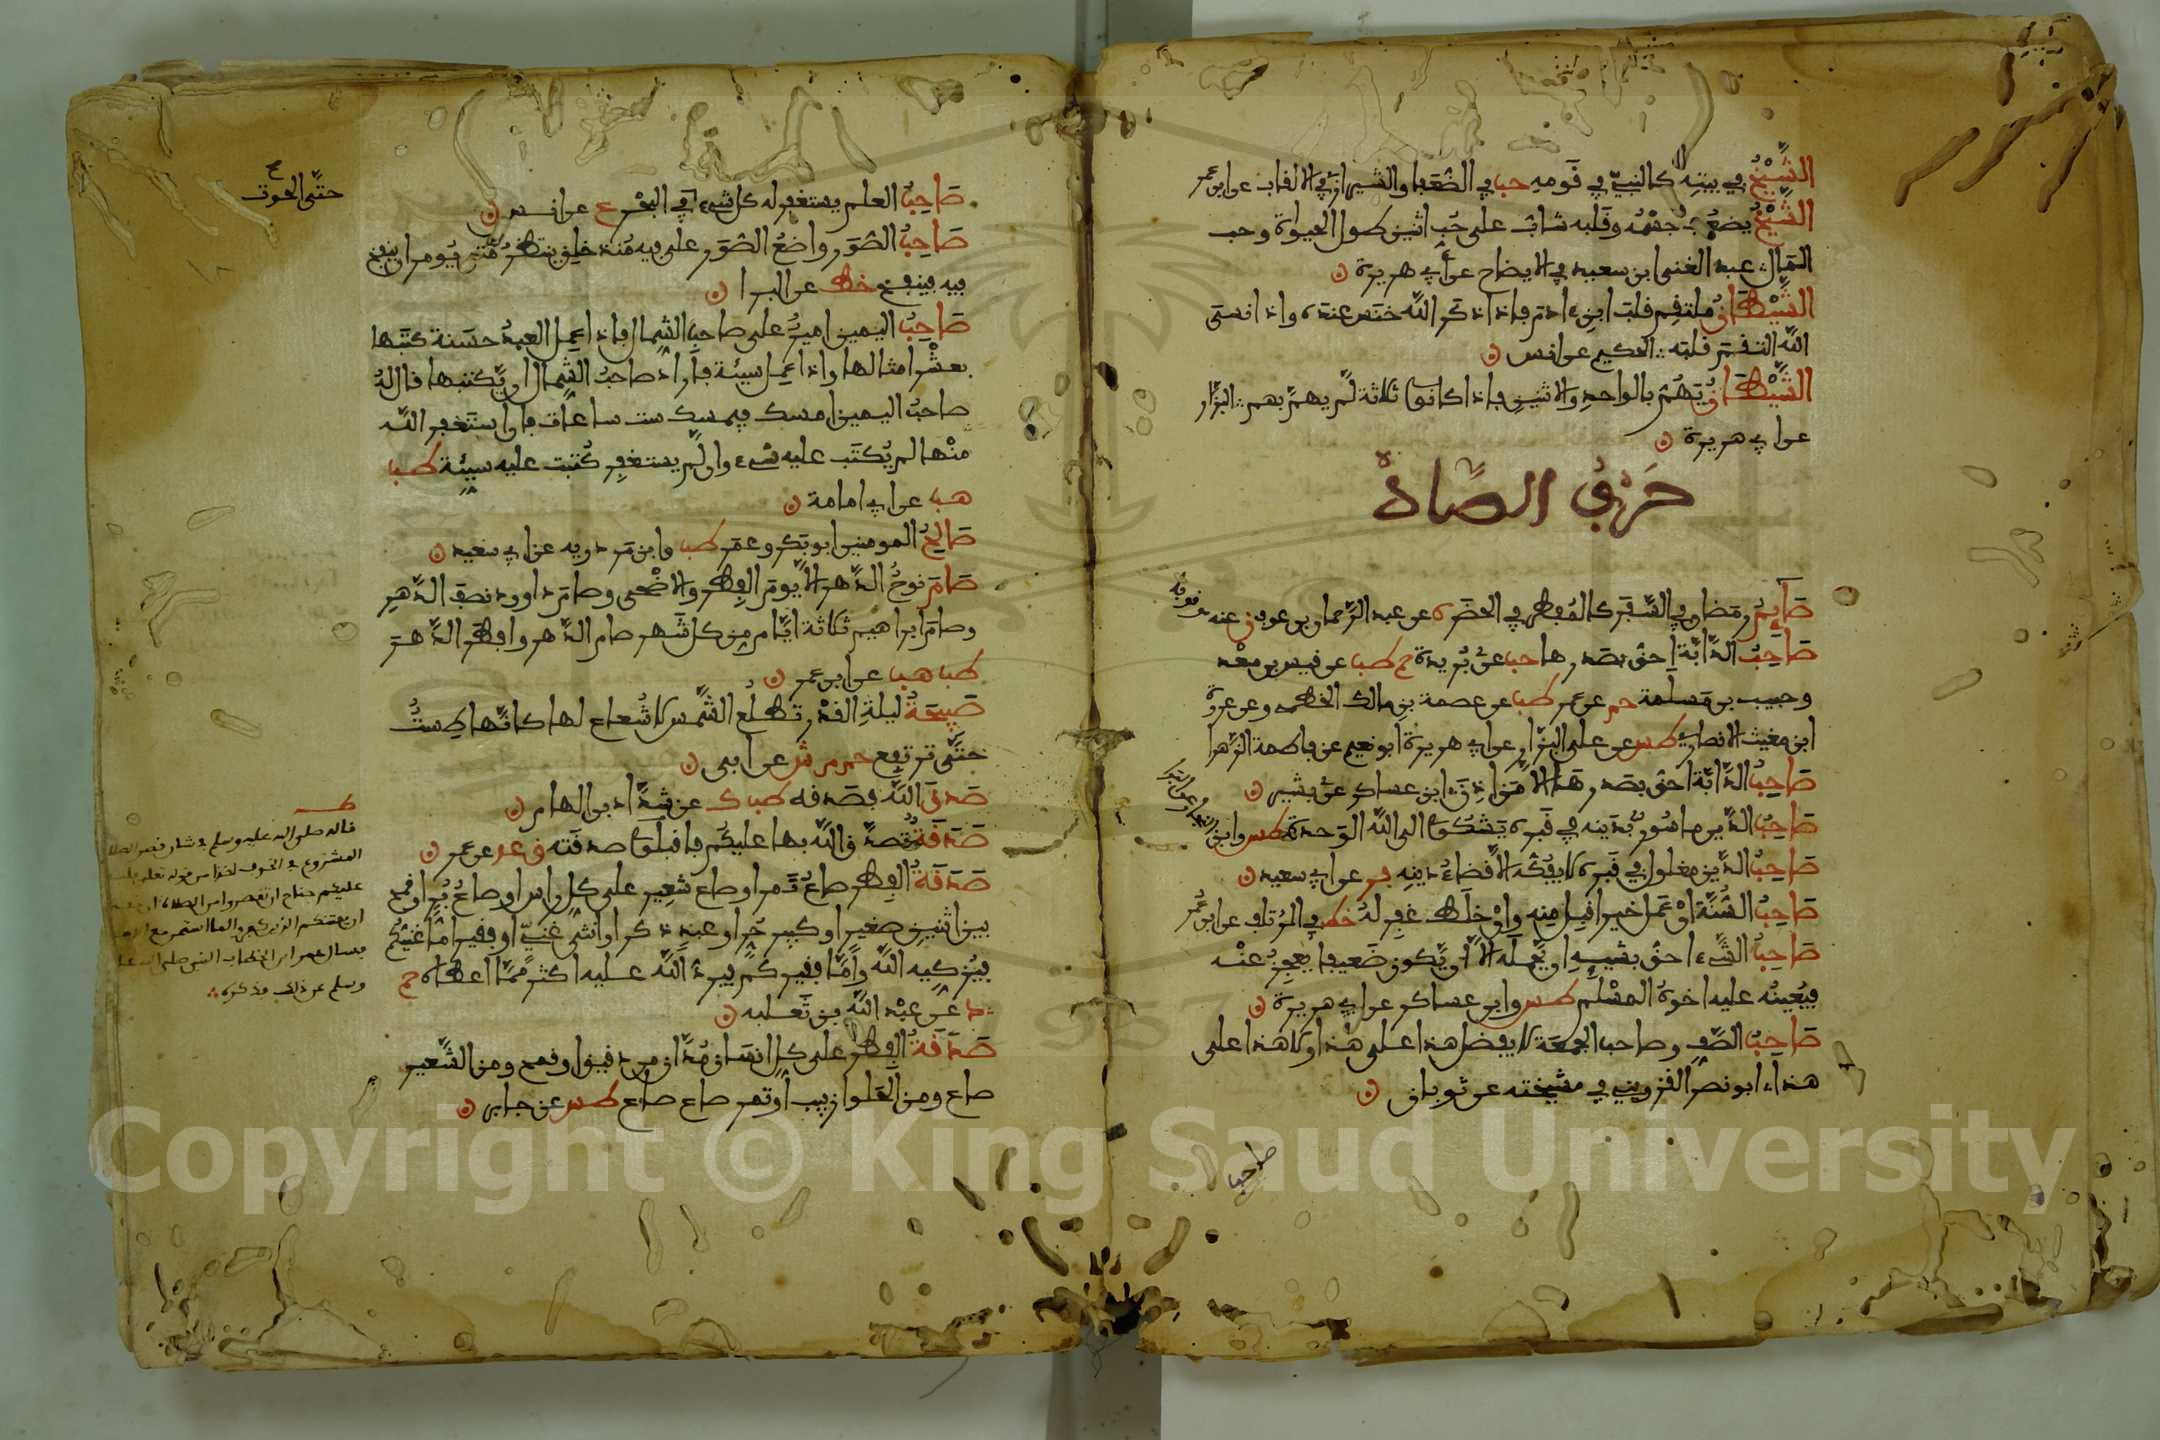 الشَّيْخُ في بيتِه كالنبيّ في قَومِه حب في الضُّعَفا والشيرازي في الالقاب عن ابن عمر
الشَّيْخُ يضعُف جسْمُه وقلبه شابٌ على حُب اثنين طول الحيوٰة وحب
المَال عبد الغنى ابن سعيد في الايضاح عن أبي هريرة
الشَّيْطَانُ ملتقِم قلبَ ابن ءادم فاذا ذكر اللّه خنَس عنده واذا نسى
اللّه التقَم قلبَه الحكيم عن انس
الشَّيْطَانُ يَهُمّ بالواحدِ والاثنين فاذا كانوا ثلاثة لَمْ يهمّ بهم البزّار
عن ابي هريرة
حَرْفُ الصَّاد
صَايِمُ رمَضان في السَّفر كالمُفطر في الحضَر ه عن عبد الرَّحمان بن عوف ن عنه موقوفا
صَاحِبُ الدَّابّة احقّ بصَدرها حب عن بُريدة حم طب عن قيس بن سعْد
وحبيب بن مَسلَمة حم عن عمر طب عن عصمة بن مالك الخطمى وعن عروة
ابن مغيث الانصاري طس عن على البزّار عن ابي هريرة ابو نعيم عن فاطمة الزّهرا
صَاحِبُ الدَّابّة احقّ بصَدرهَا الاّ مَن اذِنَ ابن عساكر عن بشير
صَاحِبُ الدَّين ماسُورٌ بدَينه في قَبره يَشكُوا الى اللّه الوَحدة طس وابن النجار عن البرا
صَاحِبُ الدَّين مغلول في قبره لا يفُكّه الاّ قضاءُ دينِه فر عن ابي سعيد
صَاحِبُ السُّنَّة انْ عَمل خيرا قبِل مِنه وانْ خلَط غفِر لهُ خط في الرُّتاب عن ابن عُمر
صَاحِبُ الشَّىء احقّ بشَيئِهِ ان يَّحمِلَه الاّ ان يَّكون ضَعيفا يَعجِزُ عنْه
فيُعينُه عليه اخوهُ المسْلم طس وابن عساكر عن ابي هريرة
صَاحِبُ الصَّف وصاحب الجمعَة لا يفضل هذا على هذا ولا هذا على
هذا ابو نصر القزويني في مشيخته عن ثوبان
صاحب
صَاحِبُ العلم يستغفر له كل شىء في البَحْر ع عن انس
حتَّى الحوت
ع
صَاحِبُ الصّور واضعٌ الصّور على فيه مُنذ خلِق ينتظرُ مَتى يُومر ان ينفخ
فيه فينفخ خط عن البرا
صَاحِبُ اليَمين اميرٌ على صاحبِ الشِّمال فاذا عمِل العبدُ حسَنة كتَبها
بعشْر امثالها واذا عمِل سيئة فاراد صاحبُ الشِّمال ان يَّكتبها قال لهُ
صاحبُ اليمين امسك فيمسك ست ساعات فان استَغفر اللّه
منْها لم يُكتَب عليه شىء وان لَّم يستغفِر كُتبت عليه سيئة طب
هب عن ابي امامة
صَالِحُ المومنين ابو بَكر وعمَر طب وابن مَردويه عن ابن سعيد
صَامَ نوحٌ الدَّهر الاّ يومَ الفِطر والاضْحى وصامَ داوود نصف الدَّهر
وصامَ ابراهيم ثلاثة ايّام من كل شَهر صام الدّهر وافطر الدَّهرَ
طب هب عن ابن عمر
صَبِيحَةُ ليلةِ القدْر تطلُعُ الشَّمس لا شُعاع لها كانَّها طستٌ
حتَّى ترتفِع حم م ش عن ابي
صَدقَ اللّه فصَدقه طب ك عن شدّاد بن الهاد
صَدَقَةٌ تَصدَّق اللّه بها عليكُم فاقبلُوا صدقَته ق عد عن عمر
صَدَقَةُ الفِطر صاعُ تمر او صاع شعِير على كل راس او صاعُ بُرّ او قمح
بين اثنين صغير او كبير حُر او عبد ذكر او انثى غنيّ او فقير امّا غنيّكم
فيُزكيه اللّه وامّا فقيركم فيردّ اللّه عليه اكثر ممَّا اعطاه حم
د عن عبْد اللّه بن ثَعلبه
صَدَقَةُ الفِطر على كل انسَان مُدّان من دقيق او قمح ومن الشَّعير
صاع ومن الحَلوا زبيب او تمر صاع صاع طس عن جابر
طس
قاله صلى الله عليه وسلم في شان قصر الصلاة
المشروع في الخوف
عليكم جناح ان تقصروا من الصلاة ان خفتم
ان يفتنكم الذين كفروا
وسلم عن ذلك فذكره